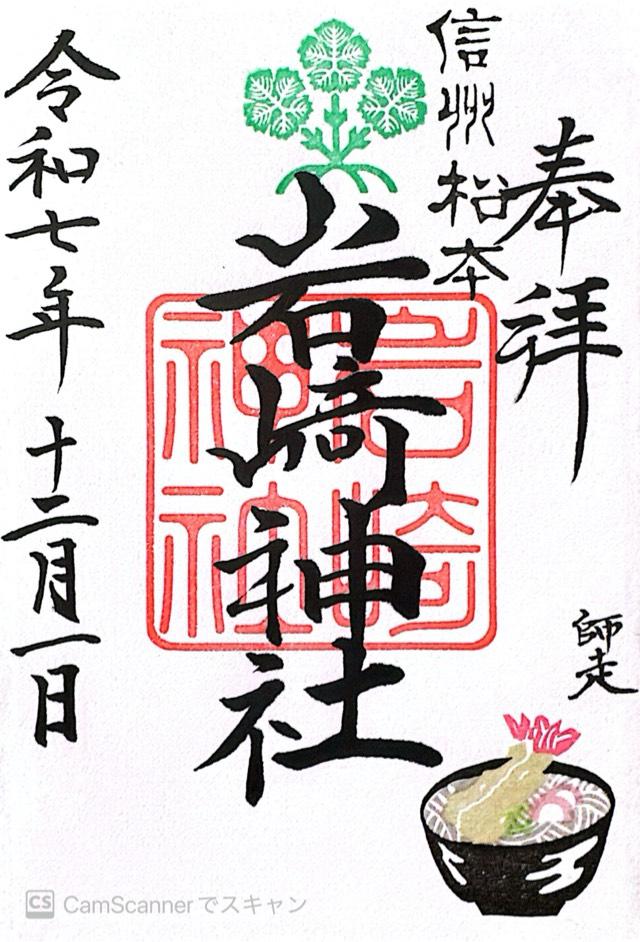 奉拝
信州松本
岩崎神社
岩崎
神社
令和七年 十二月一日
師走
CS CamScannerでスキャン